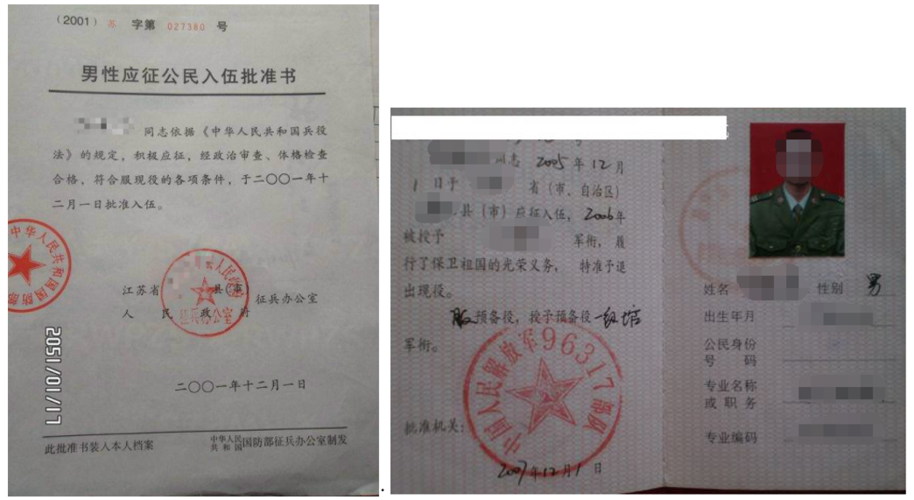 (2001) 苏 字第 027380 号
男性应征公民入伍批准书
同志依据《中华人民共和国兵役
法》的规定，积极应征，经政治审查、体格检查
合格，符合服现役的各项条件，于二〇〇一年十
二月一日批准入伍。
中华人民共和国国防部
江苏省 县(市)
人民政府
征兵办公室
二〇〇一年十二月一日
此批准书装入本人档案
中华人民共和国国防部征兵办公室制发
2051/01/17
同志 2005年12月
1日于 省(市、自治区)
县(市)应征入伍，2006年
被授予 军衔，履
行了保卫祖国的光荣义务，特准予退
出现役。
服预备役，授予预备役
军衔。
中国人民解放军96317部队
批准机关：
2007年12月1日
姓名 性别 男
出生年月
公民身份
号码
专业名称
或职务
专业编码